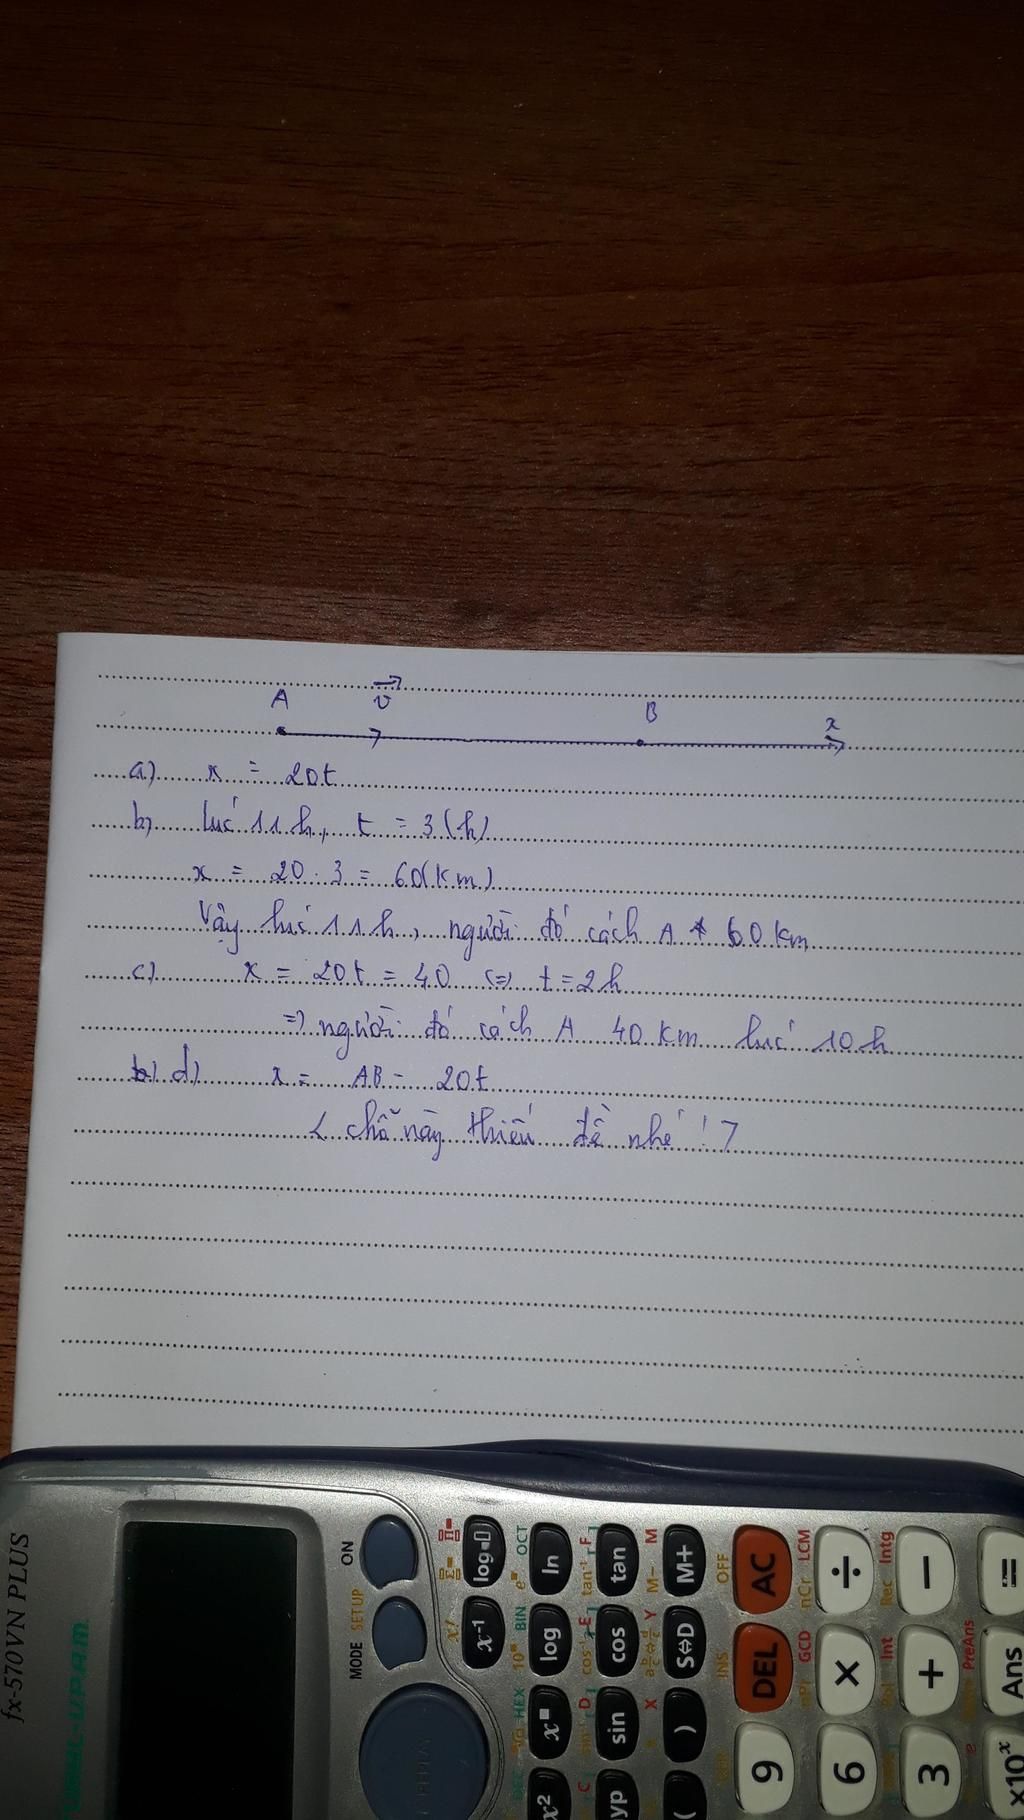 A v B x
a) x = 20t
b) lúc 11h, t = 3 (h)
x = 20 . 3 = 60 (km)
Vậy lúc 11h, người đó cách A 60 km
c) x = 20t = 40 <=> t = 2h
=> người đó cách A 40 km lúc 10h
d) x = AB - 20t
< chỗ này thiếu đề nhé ! >
fx-570VN PLUS
ON
MODE SETUP
x! x⁻¹
log
10 BIN log
OCT ln
HEX
x²
sin⁻¹ D sin
cos⁻¹ E cos
tan⁻¹ F tan
C
X )
Y S⇔D
M- M M+
(
INS DEL
OFF AC
9
nPr GCD ×
nCr LCM ÷
6
Pol Int +
Rec Intg −
3
PreAns Ans
=
×10ˣ